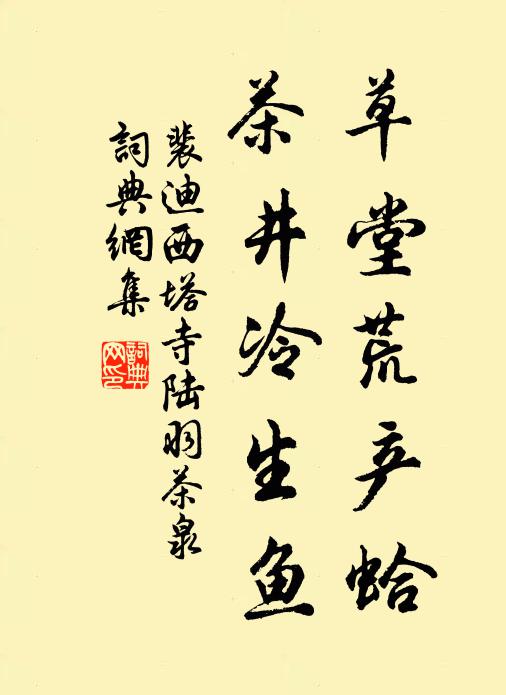 草堂荒产蛤
茶井冷生鱼
裴迪西塔寺陆羽茶泉
詞典網集
詞典
网印